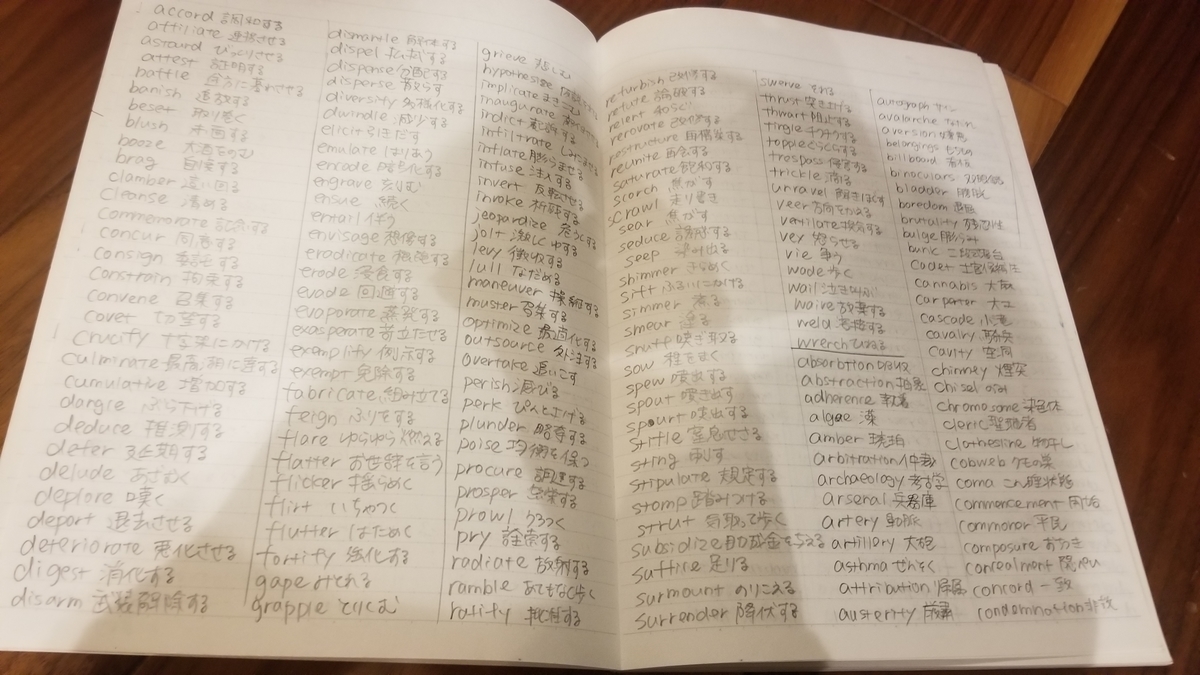 accord 調和する
affiliate 連携させる
astound びっくりさせる
attest 証明する
baffle 途方に暮れさせる
banish 追放する
beset 取り巻く
blush 赤面する
booze 大酒をのむ
brag 自慢する
clamber 這い回る
cleanse 清める
commemorate 記念する
concur 同意する
consign 委託する
constrain 拘束する
convene 召集する
covet 切望する
crucify 十字架にかける
culminate 最高潮に達する
cumulative 増加する
dangle ぶら下げる
deduce 推測する
defer 延期する
delude あざむく
deplore 嘆く
deport 退去させる
deteriorate 悪化させる
digest 消化する
disarm 武装解除する
dismantle 解体する
dispel 払拭する
dispense 分配する
disperse 散らす
diversify 多様化する
dwindle 減少する
elicit 引きだす
emulate はりあう
encode 暗号化する
engrave 刻む
ensue 続く
entail 伴う
envisage 想像する
eradicate 根絶する
erode 浸食する
evade 回避する
evaporate 蒸発する
exasperate 苛立たせる
exemplify 例示する
exempt 免除する
fabricate 組み立てる
feign ふりをする
flare ゆらゆら燃える
flatter お世辞を言う
flicker 揺らめく
flirt いちゃつく
flutter はためく
fortify 強化する
gape みとれる
grapple とりくむ
grieve 悲しむ
hypothesize
implicate まきこむ
inaugurate
indict 起訴する
infiltrate
inflate 膨らませる
infuse 注入する
invert 反転させる
invoke 祈願する
jeopardize 危うくする
jolt 激しくゆする
levy 徴収する
lull なだめる
maneuver 操縦する
muster 召集する
optimize 最適化する
outsource 外注する
overtake 追いこす
perish 滅びる
perk ぴんと上げる
plunder 略奪する
poise 均衡を保つ
procure 調達する
prosper 栄する
prowl うろつく
pry 詮索する
radiate 放射する
ramble あてもなく歩く
ratify 批准する
refurbish 改修する
refute 論破する
relent 和らぐ
renovate 改修する
restructure 再構築する
reunite 再会する
saturate 飽和する
scorch 焦がす
scrawl 走り書き
sear 焦がす
seduce 誘惑する
seep 染み出る
shimmer きらめく
sift ふるいにかける
simmer 煮る
smear 塗る
snuff 嗅ぎ取る
sow 種をまく
spew 噴出する
spout 噴き出す
spurt 噴出する
stifle 窒息させる
sting 刺す
stipulate 規定する
stomp 踏みつける
strut 気取って歩く
subsidize 助成金を与える
suffice 足りる
surmount のりこえる
surrender 降伏する
swerve それる
thrust 突き上げる
thwart 阻止する
tingle チクチクする
topple ぐらぐらする
trespass 侵害する
trickle 滴る
unravel 解きほぐす
veer 方向をかえる
ventilate 換気する
vex 怒らせる
vie 争う
wade 歩く
wail 泣き叫ぶ
waive 放棄する
weld 溶接する
wrench ひねる
absorbtion 吸収
abstraction 抽象
adherence 執着
algae 藻
amber 琥珀
arbitration 仲裁
archaeology 考古学
arsenal 兵器庫
artery 動脈
artillery 大砲
asthma ぜんそく
attribution 帰属
austerity 厳粛
autograph サイン
avalanche なだれ
aversion 嫌悪
belongings もちもの
billboard 看板
binoculars 双眼鏡
bladder 膀胱
boredom 退屈
brutality 残忍性
bulge 膨らみ
bunk 二段寝台
cadet 士官候補生
cannabis 大麻
carpenter 大工
cascade 小滝
cavalry 騎兵
cavity 空洞
chimney 煙突
chisel のみ
chromosome 染色体
cleric 聖職者
clothesline 物干し
cobweb クモの巣
coma こん睡状態
commencement 開始
commonor 平民
composure おちつき
concealment 隠ぺい
concord 一致
condemnation 非難